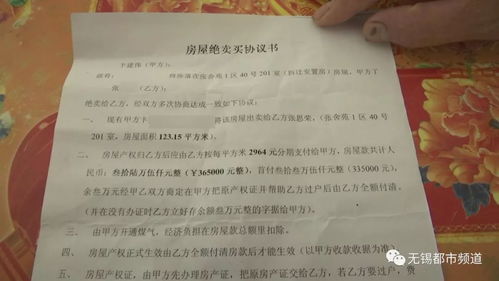 房屋绝卖买协议书
卞建伟（甲方）：
兹有： 自愿将在张舍苑1区40号201室（拆迁安置房）房屋，甲方丁
张 （乙方）：
绝卖给乙方，经双方多次协商达成一致如下协议：
一、 现有甲方卞 将该房屋出卖给乙方张思荣，（张舍苑1区40号
201室，房屋面积123.15平方米）。
二、 房屋产权归乙方后应由乙方按每平方米2964元分期支付给甲方，房屋款共计人
民币：叁拾陆万伍仟元整（￥365000元整），首付叁拾叁万伍仟元整（335000元），
余叁万元经甲乙双方商定在甲方把原产权证并帮助乙方过户后由乙方全额付清。
（并在没有办证时乙方立好存余额叁万元整的字据给甲方）。
三、 由甲方开通煤气，经济负担在房屋款总额里扣除。
四、 房屋产权正式生效由乙方全额付清房款后才能生效（以甲方收款收据为准）
五、 房屋产权证，由甲方先办理房产证，把原房产证交给乙方，若乙方要过户，费
无锡都市频道